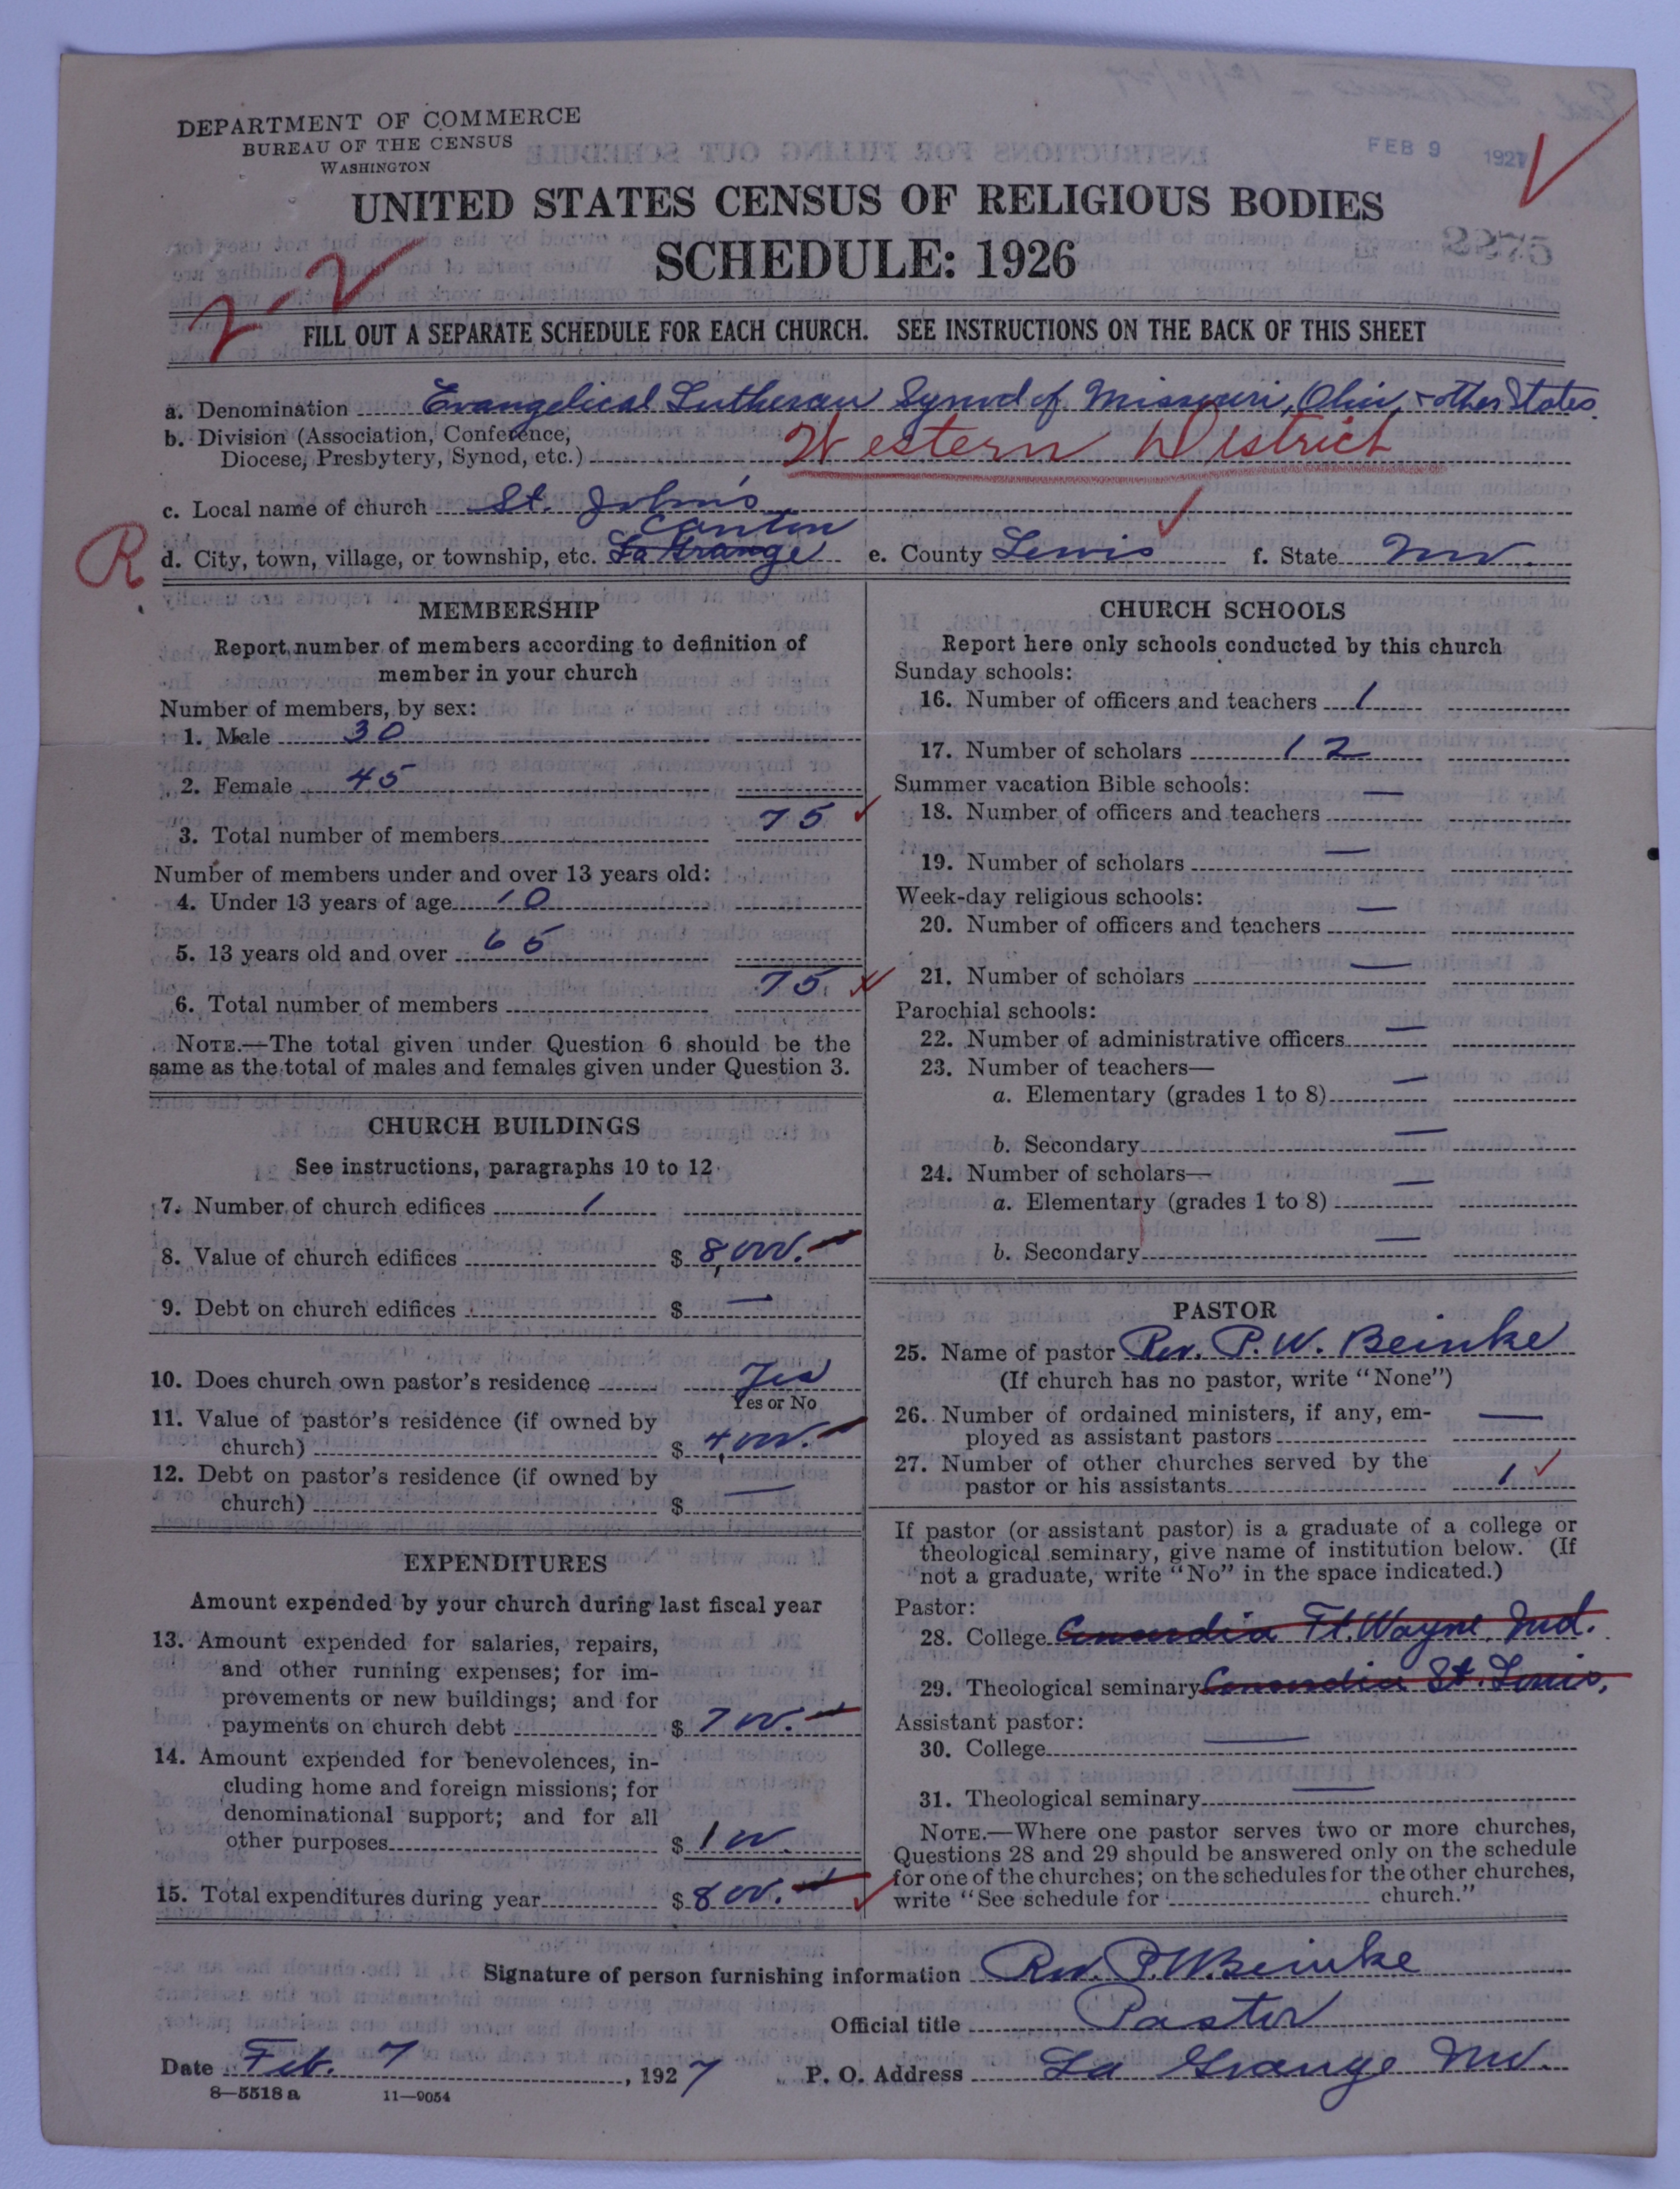 DEPARTMENT OF COMMERCE
BUREAU OF THE CENSUS
WASHINGTON
FEB 9 1927
UNITED STATES CENSUS OF RELIGIOUS BODIES
SCHEDULE: 1926
2-2
FILL OUT A SEPARATE SCHEDULE FOR EACH CHURCH. SEE INSTRUCTIONS ON THE BACK OF THIS SHEET
a. Denomination Evangelical Lutheran Synod of Missouri, Ohio, & other States.
b. Division (Association, Conference,
Diocese, Presbytery, Synod, etc.) Western District
c. Local name of church St. John's
Canton
R d. City, town, village, or township, etc. La Grange e. County Lewis f. State Mo.
MEMBERSHIP
Report number of members according to definition of
member in your church
Number of members, by sex:
1. Male 30
2. Female 45
3. Total number of members 75
Number of members under and over 13 years old:
4. Under 13 years of age 10
5. 13 years old and over 65
6. Total number of members 75
NOTE.—The total given under Question 6 should be the
same as the total of males and females given under Question 3.
CHURCH BUILDINGS
See instructions, paragraphs 10 to 12
7. Number of church edifices 1
8. Value of church edifices $ 8,000.—
9. Debt on church edifices $ —
10. Does church own pastor's residence Yes
Yes or No
11. Value of pastor's residence (if owned by
church) $ 4,000.—
12. Debt on pastor's residence (if owned by
church) $ —
EXPENDITURES
Amount expended by your church during last fiscal year
13. Amount expended for salaries, repairs,
and other running expenses; for im-
provements or new buildings; and for
payments on church debt $ 700.—
14. Amount expended for benevolences, in-
cluding home and foreign missions; for
denominational support; and for all
other purposes $ 100.
15. Total expenditures during year $ 800.—
CHURCH SCHOOLS
Report here only schools conducted by this church
Sunday schools:
16. Number of officers and teachers 1
17. Number of scholars 12
Summer vacation Bible schools:
18. Number of officers and teachers —
19. Number of scholars —
Week-day religious schools:
20. Number of officers and teachers —
21. Number of scholars —
Parochial schools:
22. Number of administrative officers —
23. Number of teachers—
a. Elementary (grades 1 to 8) —
b. Secondary —
24. Number of scholars—
a. Elementary (grades 1 to 8) —
b. Secondary —
PASTOR
25. Name of pastor Rev. P. W. Beinke
(If church has no pastor, write "None")
26. Number of ordained ministers, if any, em-
ployed as assistant pastors —
27. Number of other churches served by the
pastor or his assistants 1
If pastor (or assistant pastor) is a graduate of a college or
theological seminary, give name of institution below. (If
not a graduate, write "No" in the space indicated.)
Pastor:
28. College Concordia Ft. Wayne, Ind.
29. Theological seminary Concordia St. Louis,
Assistant pastor:
30. College —
31. Theological seminary —
NOTE.—Where one pastor serves two or more churches,
Questions 28 and 29 should be answered only on the schedule
for one of the churches; on the schedules for the other churches,
write "See schedule for church."
Signature of person furnishing information Rev. P. W. Beinke
Official title Pastor
Date Feb. 7, 1927 P. O. Address La Grange Mo.
8—5518 a 11—9054